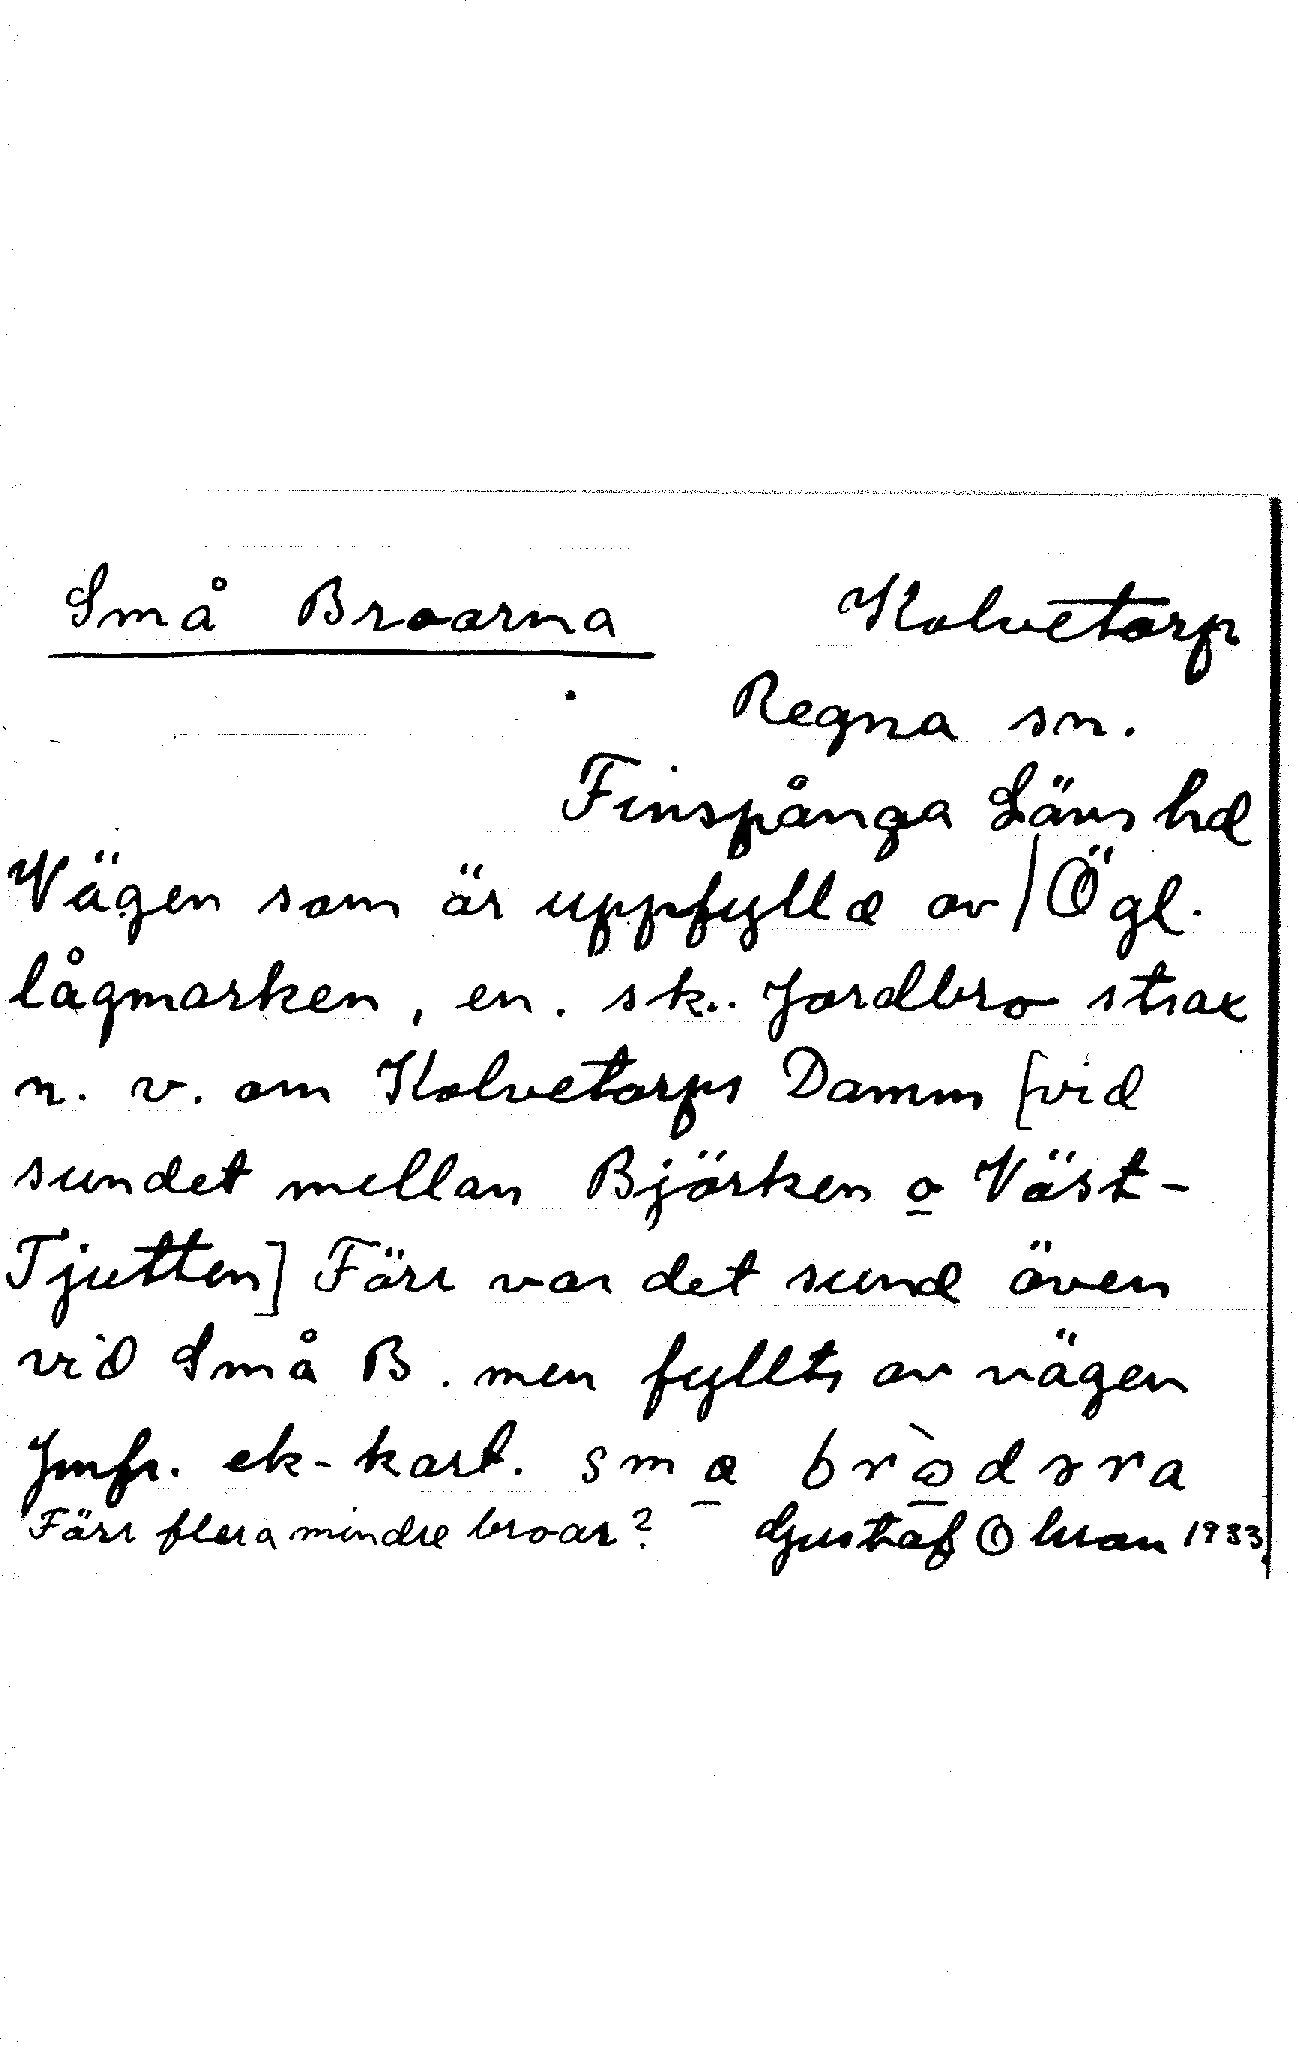 Små Broarna Kolvetorp
Regna sn.
Finspånga Läns hd
Vägen som är uppfylld av / Ögl.
lågmarken, en. sk.. Jordbro strax
n. v. om Kolvetorps Damm [vid
sundet mellan Björken o Väst-
Tjutten] Förr var det sund även
vid Små B. men fyllts av vägen
Jmfr. ek-kart.
Förr flera mindre broar? Gustaf Ohman 1933